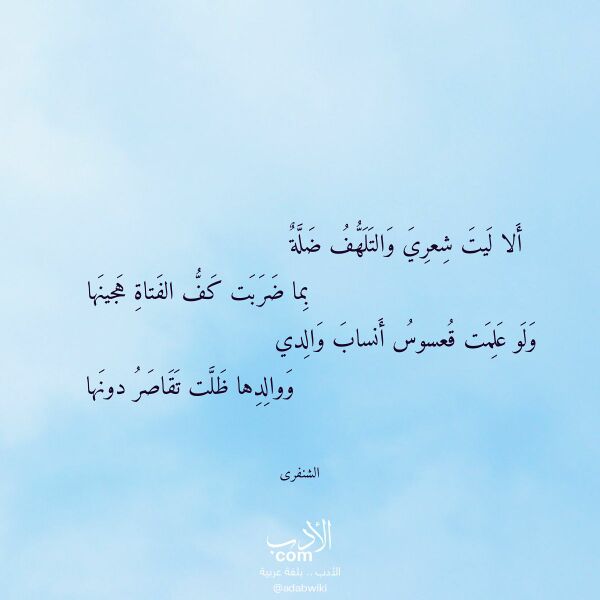 أَلا لَيتَ شِعرِيَ وَالتَلَهُّفُ ضَلَّةٌ
بِما ضَرَبَت كَفُّ الفَتاةِ هَجينَها
وَلَو عَلِمَت قُعسوسُ أَنسابَ وَالِدي
وَوالِدِها ظَلَّت تَقَاصَرُ دونَها
الشنفرى
الأدب
com
الأدب .. بلغة عربية
@adabwiki